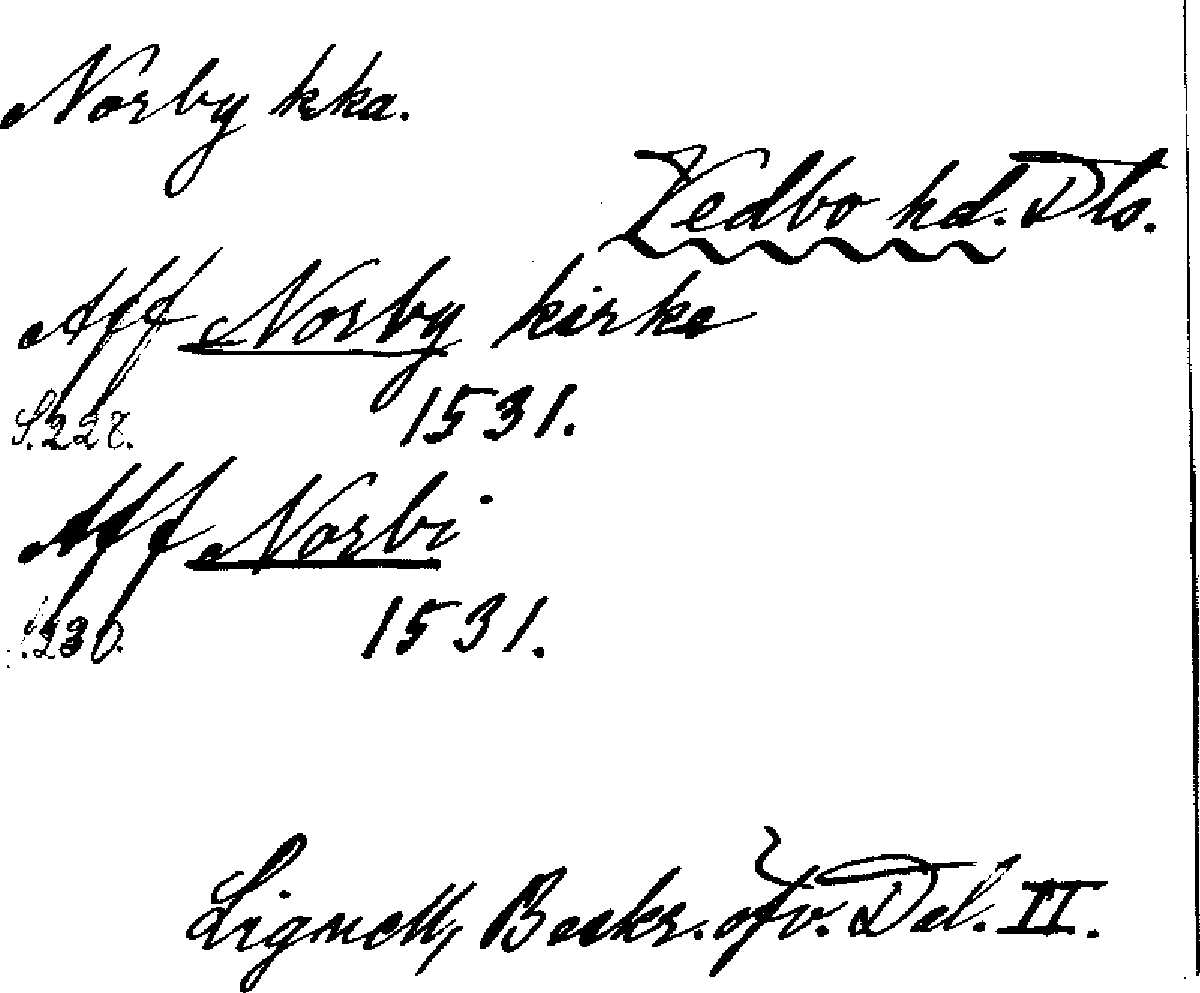 Norby kka.
Vedbo hd. Dls.
Aff Norby kirke
S. 227. 1531.
Aff Norbi
S. 230. 1531.
Lignell, Beskr. öfv. Dal. II.